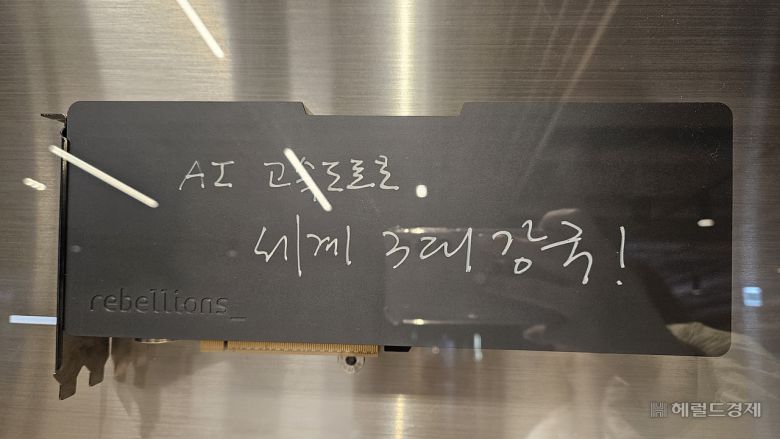 AI 고속도로로
세계 3대 강국!
rebellions_
헤럴드경제